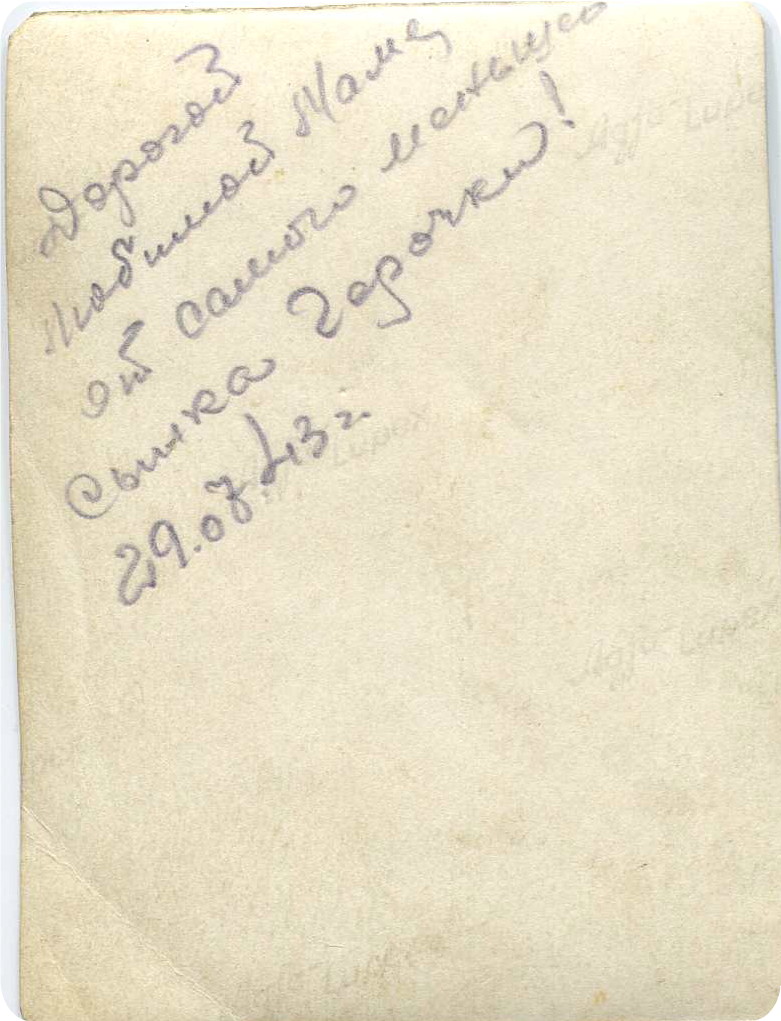 Дорогой
любимой Маме
от самого меньшего
сынка Герочки!
29.07.43 г.
Agfa-Lupex
Agfa-Lupex
Agfa-Lupex
Agfa-Lupex